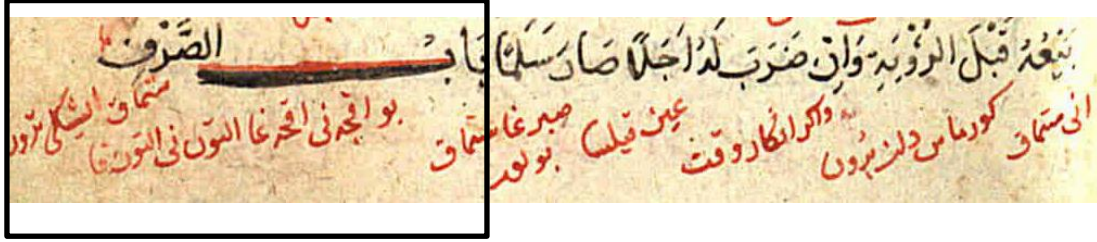 بَيْعُهُ قَبْلَ الرُّؤْيَةِ وَاِنْ ضَرَبَ لَهُ اَجَلًا صَارَ سَلَمًا بَابُ الصَّرْفِ
انى ستماق كورماس دن واكر انكار وقت عين قيلسا ستماق بو اقچه نى اقچه غا التون نى التون قا ستماق